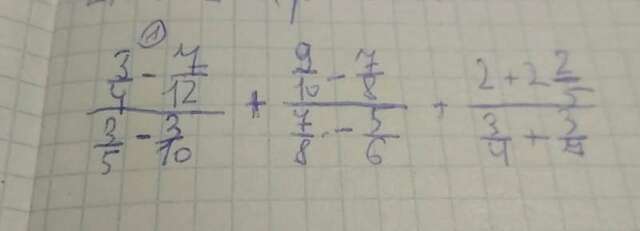 1
\frac{\frac{3}{4} - \frac{4}{12}}{\frac{3}{5} - \frac{3}{10}} + \frac{\frac{9}{10} - \frac{7}{8}}{\frac{7}{8} - \frac{5}{6}} + \frac{2 + 2\frac{2}{5}}{\frac{3}{4} + \frac{3}{4}}